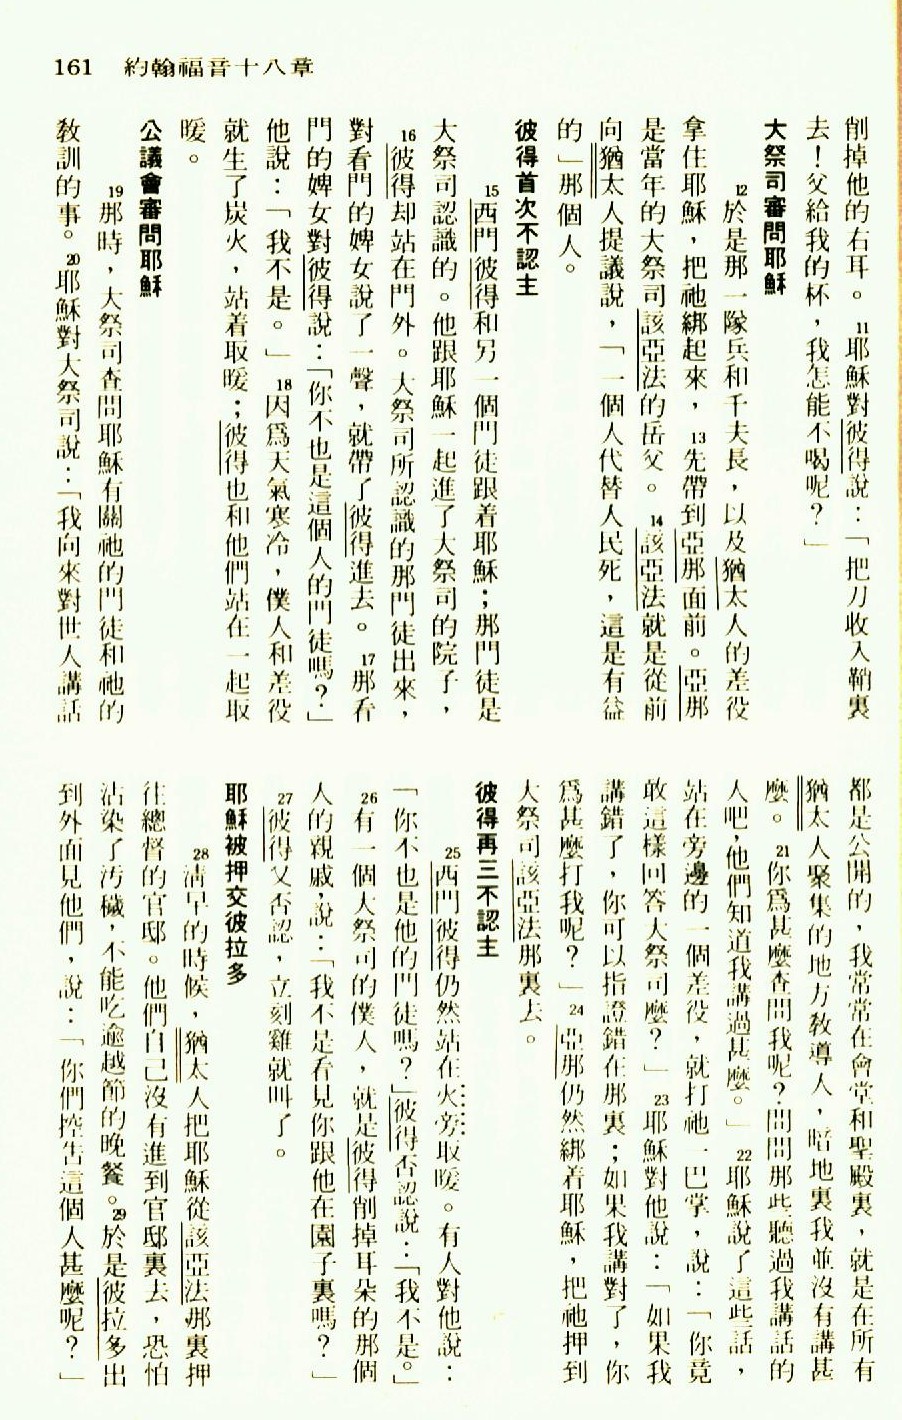 161 約翰福音十八章
削掉他的右耳。11耶穌對彼得說：「把刀收入鞘裏
去！父給我的杯，我怎能不喝呢？」
大祭司審問耶穌
12於是那一隊兵和千夫長，以及猶太人的差役
拿住耶穌，把祂綁起來，13先帶到亞那面前。亞那
是當年的大祭司該亞法的岳父。14該亞法就是從前
向猶太人提議說，「一個人代替人民死，這是有益
的」那個人。
彼得首次不認主
15西門彼得和另一個門徒跟着耶穌；那門徒是
大祭司認識的。他跟耶穌一起進了大祭司的院子，
16彼得却站在門外。大祭司所認識的那門徒出來，
對看門的婢女說了一聲，就帶了彼得進去。17那看
門的婢女對彼得說：「你不也是這個人的門徒嗎？」
他說：「我不是。」18因爲天氣寒冷，僕人和差役
就生了炭火，站着取暖；彼得也和他們站在一起取
暖。
公議會審問耶穌
19那時，大祭司查問耶穌有關祂的門徒和祂的
教訓的事。20耶穌對大祭司說：「我向來對世人講話
都是公開的，我常常在會堂和聖殿裏，就是在所有
猶太人聚集的地方教導人，暗地裏我並沒有講甚
麼。21你爲甚麼查問我呢？問問那些聽過我講話的
人吧，他們知道我講過甚麼。」22耶穌說了這些話，
站在旁邊的一個差役，就打祂一巴掌，說：「你竟
敢這樣回答大祭司麼？」23耶穌對他說：「如果我
講錯了，你可以指證錯在那裏；如果我講對了，你
爲甚麼打我呢？」24亞那仍然綁着耶穌，把祂押到
大祭司該亞法那裏去。
彼得再三不認主
25西門彼得仍然站在火旁取暖。有人對他說：
「你不也是他的門徒嗎？」彼得否認說：「我不是。」
26有一個大祭司的僕人，就是彼得削掉耳朵的那個
人的親戚，說：「我不是看見你跟他在園子裏嗎？」
27彼得又否認，立刻雞就叫了。
耶穌被押交彼拉多
28清早的時候，猶太人把耶穌從該亞法那裏押
往總督的官邸。他們自己沒有進到官邸裏去，恐怕
沾染了汚穢，不能吃逾越節的晚餐。29於是彼拉多出
到外面見他們，說：「你們控告這個人甚麼呢？」